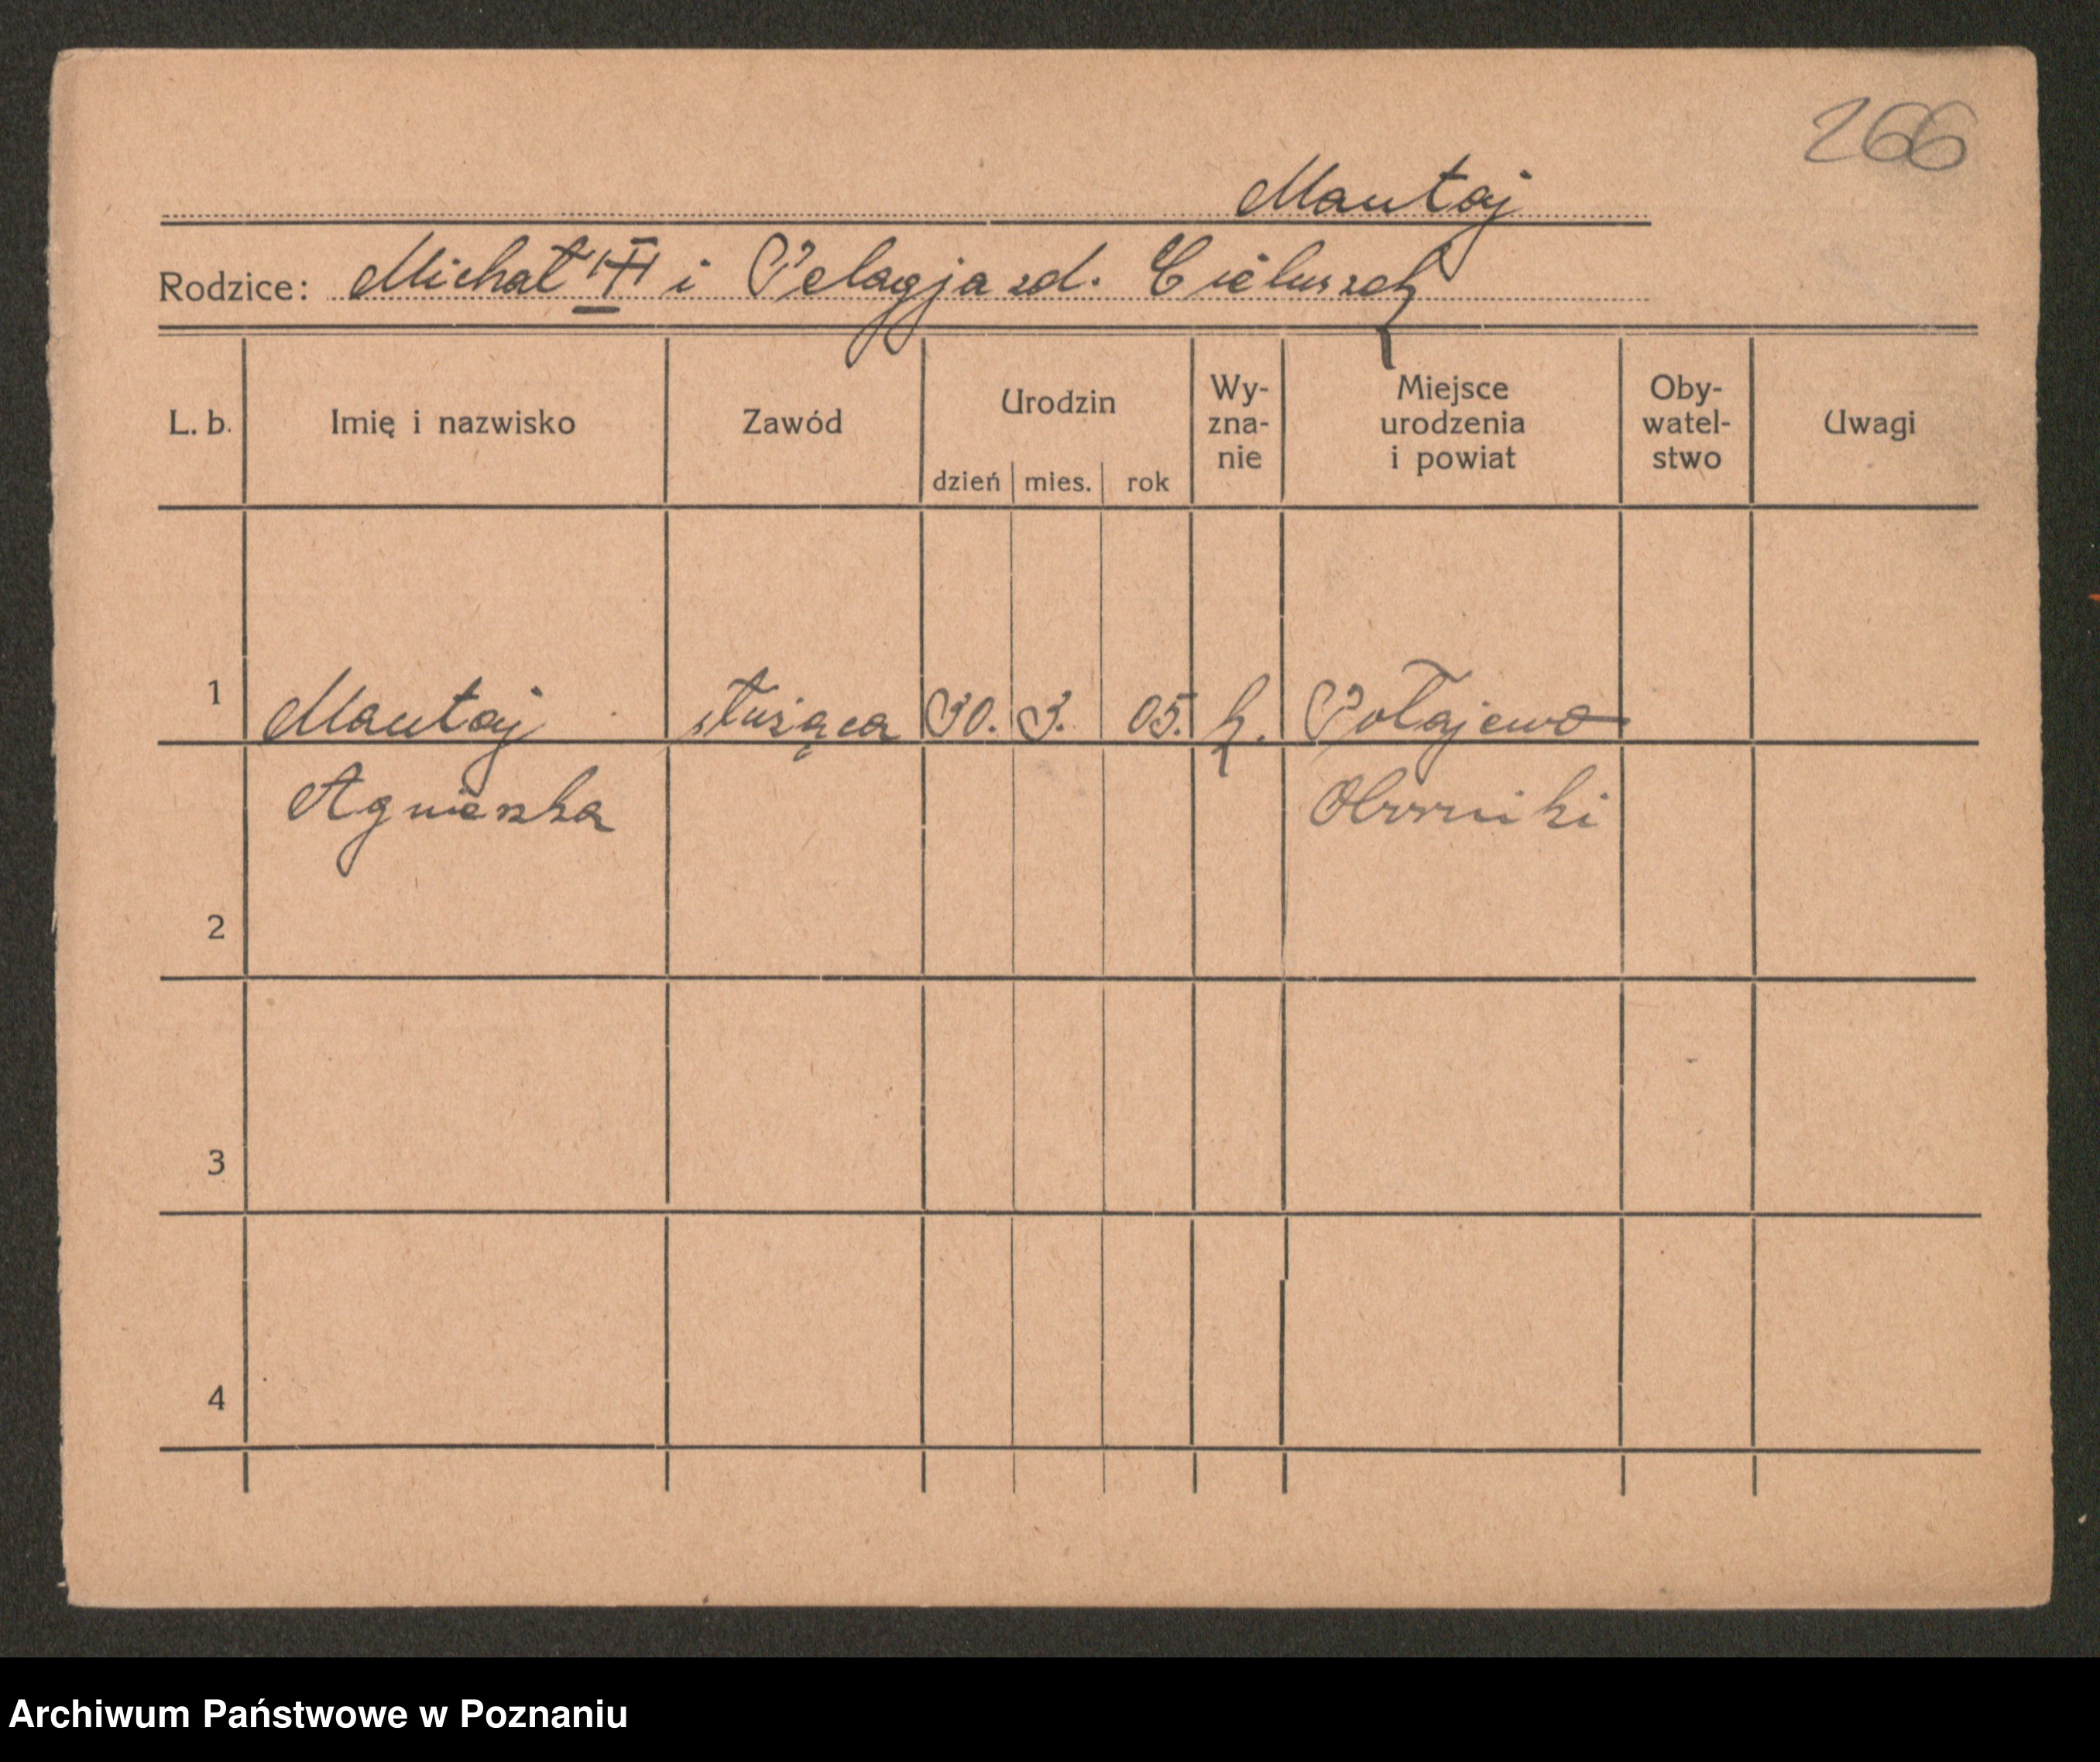 266
Mantaj
Rodzice: Michał i Pelagja zd.
L. b. Imię i nazwisko Zawód Urodzin dzień mies. rok Wy-zna-nie Miejsce urodzenia i powiat Oby-watel-stwo Uwagi
1 Mantaj służąca 30. 3. 05. k. Połajewo
Agnieszka Oborniki
2
3
4
Archiwum Państwowe w Poznaniu